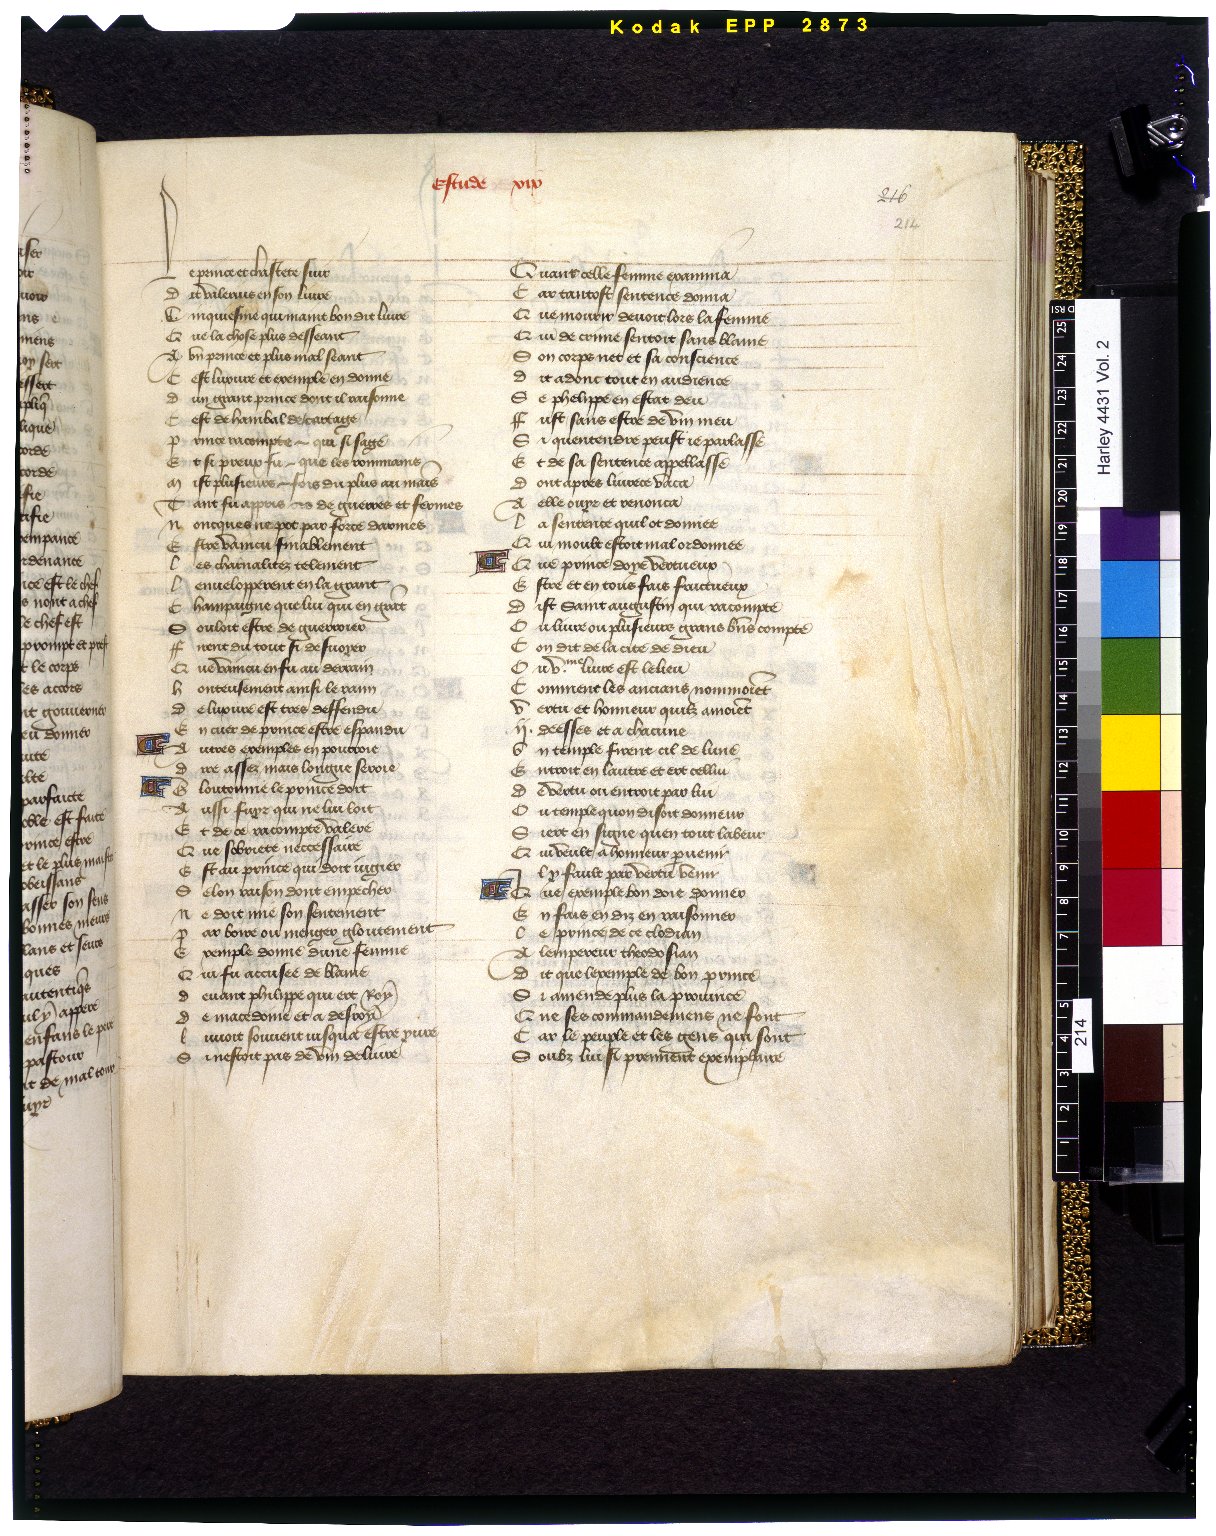 Kodak EPP 2873
Estude xix
216
214
Le prince et chastete suir
Dit valerius en son livre
Cinquiesme qui maint bon dit livre
Que la chose plus desseant
A un prince et plus mal seant
C est luxure et exemple en donne
D un grant prince dont il raisonne
C est de hanibal de cartage
Prince racompte qui si sage
Et si preux fu que les rommains
Mist plusieurs fois du plus au mains
Tant fu appris de guerres et fermes
N oncques ne pot par force darmes
Estre vaincu finablement
Les charnalitez telement
L envelopperent en la grant
Champaigne que lui qui en grant
Souloit estre de guerroier
Firent du tout si desvoyer
Que vaincu en fu au derrain
Honteusement ainsi le
De luxure est tres deffendu
En cuer de prince estre espandu
Autres exemples en pourroie
Dire assez mais longue seroie
Gloutonnie le prince doit
Aussi fuyr qui ne lui loit
Et de ce racompte valere
Que sobriete neccessaire
Est au prince qui doit iugier
Selon raison dont empecher
Ne doit mie son sentement
Par boire ou menger gloutement
Exemple donne dune femme
Qui fu accusee de blame
Devant philippe qui ert Roy
De macedonie et a desroy
buvoit souvent iusqua estre yvre
Si nestoit pas de vin delivre
Quant celle femme examina
Car tantost sentence donna
Que mourir devoit lors la femme
Qui de crime sentoit sans blame
Son corps net et sa conscience
Dit adonc tout en audience
Se phelippe en estat deu
Fust sans estre de vin meu
Si quentendre peust ie parlasse
Et de sa sentence appellasse
Dont apres livrece vaca
A elle ouyr et renonca
La sentence quil ot donnee
Qui moult estoit mal ordonnee
Que prince doye vertueux
Estre et en tous fais fructueux
Dist Saint augustin qui racompte
Ou livre ou plusieurs grans biens compte
Con dit de la cite de dieu
Ou v.me livre est le lieu
Comment les ancians nommoient
Vertu et honneur quilz amoient
ij. deesses et a chacune
Un temple firent cil de lune
Entroit en lautre et ert celluy
De vertu ou entroit par lui
Ou temple quon disoit donneur
Siert en signe quen tout labeur
Qui veult a honneur parvenir
Il y fault par vertu venir
Que exemple bon doit donner
En fais en diz en raisonner
Le prince de ce clodian
A lempereur theodosian
Dit que lexemple de bon prince
Si amende plus la province
Que ses commandemens ne font
Car le peuple et les gens qui sont
Soubz lui si prennent exemplaire
Harley 4431 Vol. 2
214